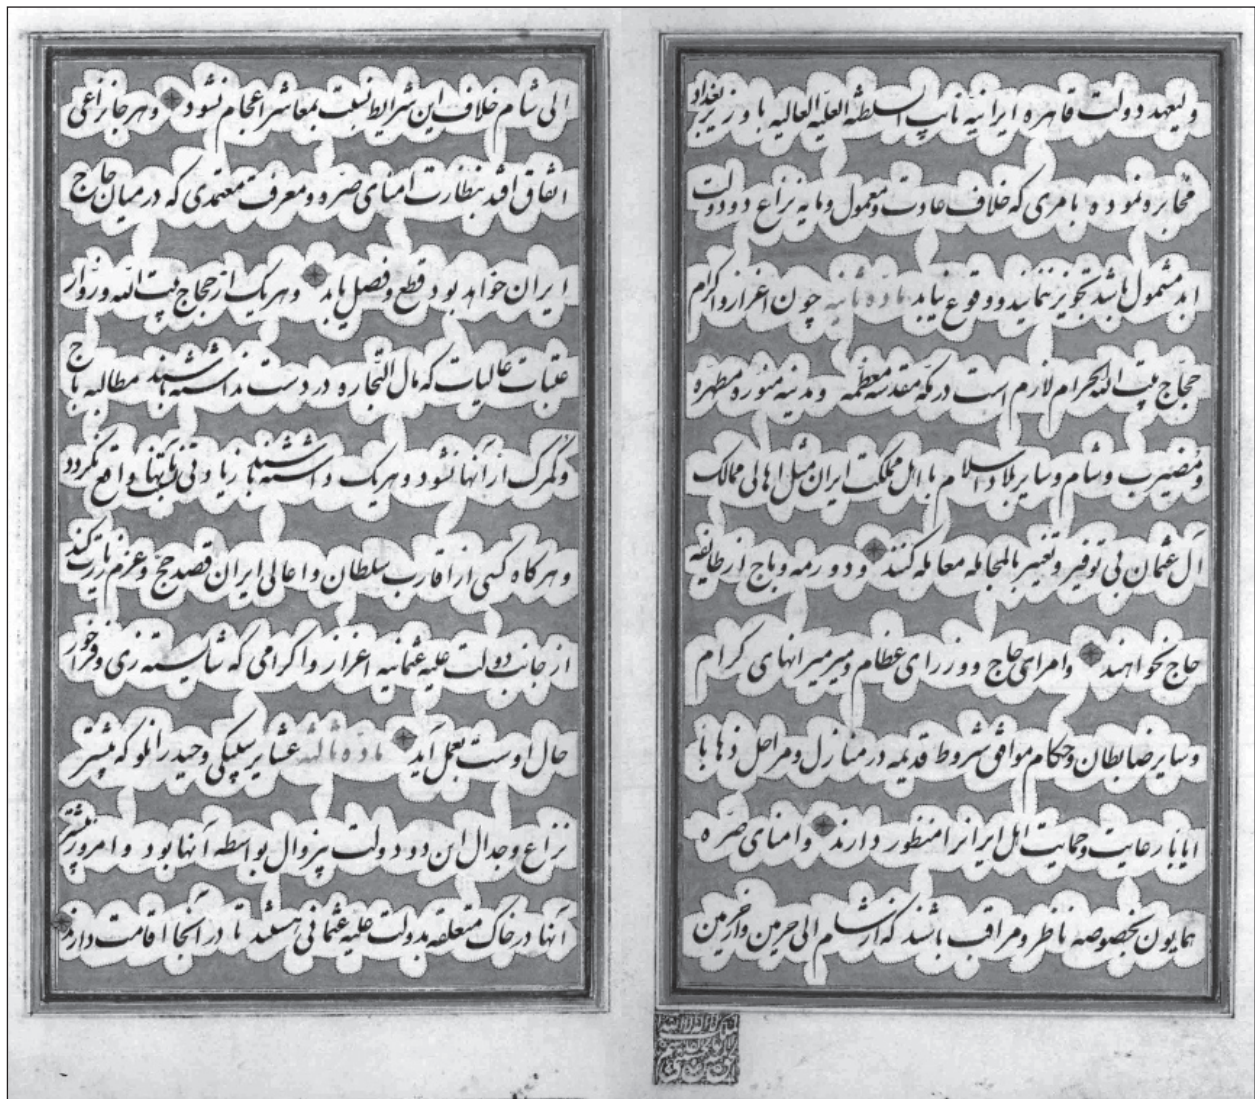 ولیعهد دولت قاهره ایرانیه نایب السلطنه العلیه العالیه با وزیر بغداد
مخابره نموده بامری که خلاف عادت و معمول و مایه نزاع دو دولت
ابد مشمول باشد تجویز ننمایند و وقوع نیابد ماده ثانیه چون اعزاز و اکرام
حجاج بیت الله الحرام لازم است در مکه مقدسه معظمه و مدینه منوره مطهره
و مضیرب و شام و سایر بلاد اسلام با اهل مملکت ایران مثل اهالی ممالک
آل عثمان بی توفیر و تغییر بالمجامله معامله کنند و دورمه و باج از طایفه
حاج نخواهند و امرای حاج و وزرای عظام و میرمیرانهای کرام
و سایر ضابطان و حکام موافق شروط قدیمه در منازل و مراحل ذهابا
ایابا رعایت و حمایت اهل ایرانرا منظور دارند و امنای صره
همایون بخصوصه ناظر و مراقب باشند که از شام الی حرمین و از حرمین
الی شام خلاف این شرایط نسبت بمعاشر اعجام نشود و هر جا نزاعی
اتفاق افتد بنظارت امنای صره و معرفت معتمدی که در میان حاج
ایران خواهد بود قطع و فصل یابد و هریک از حجاج بیت الله و زوار
عتبات عالیات که مال التجاره در دست نداشته باشند مطالبه باج
و گمرک از آنها نشود و هریک داشته باشند زیادتی بآنها واقع نگردد
و هرکاه کسی از اقارب سلطان و اعالی ایران قصد حج و عزم زیارت کند
از جانب دولت علیه عثمانیه اعزاز و اکرامی که شایسته زی و فراخور
حال اوست بعمل آید ماده ثالثه عشایر سپیکی و حیدرانلو که پیشتر
نزاع و جدال این دو دولت بیزوال بواسطه آنها بود و امروز بیشتر
آنها در خاک متعلقه بدولت علیه عثمانی هستند تا در آنجا اقامت دارند